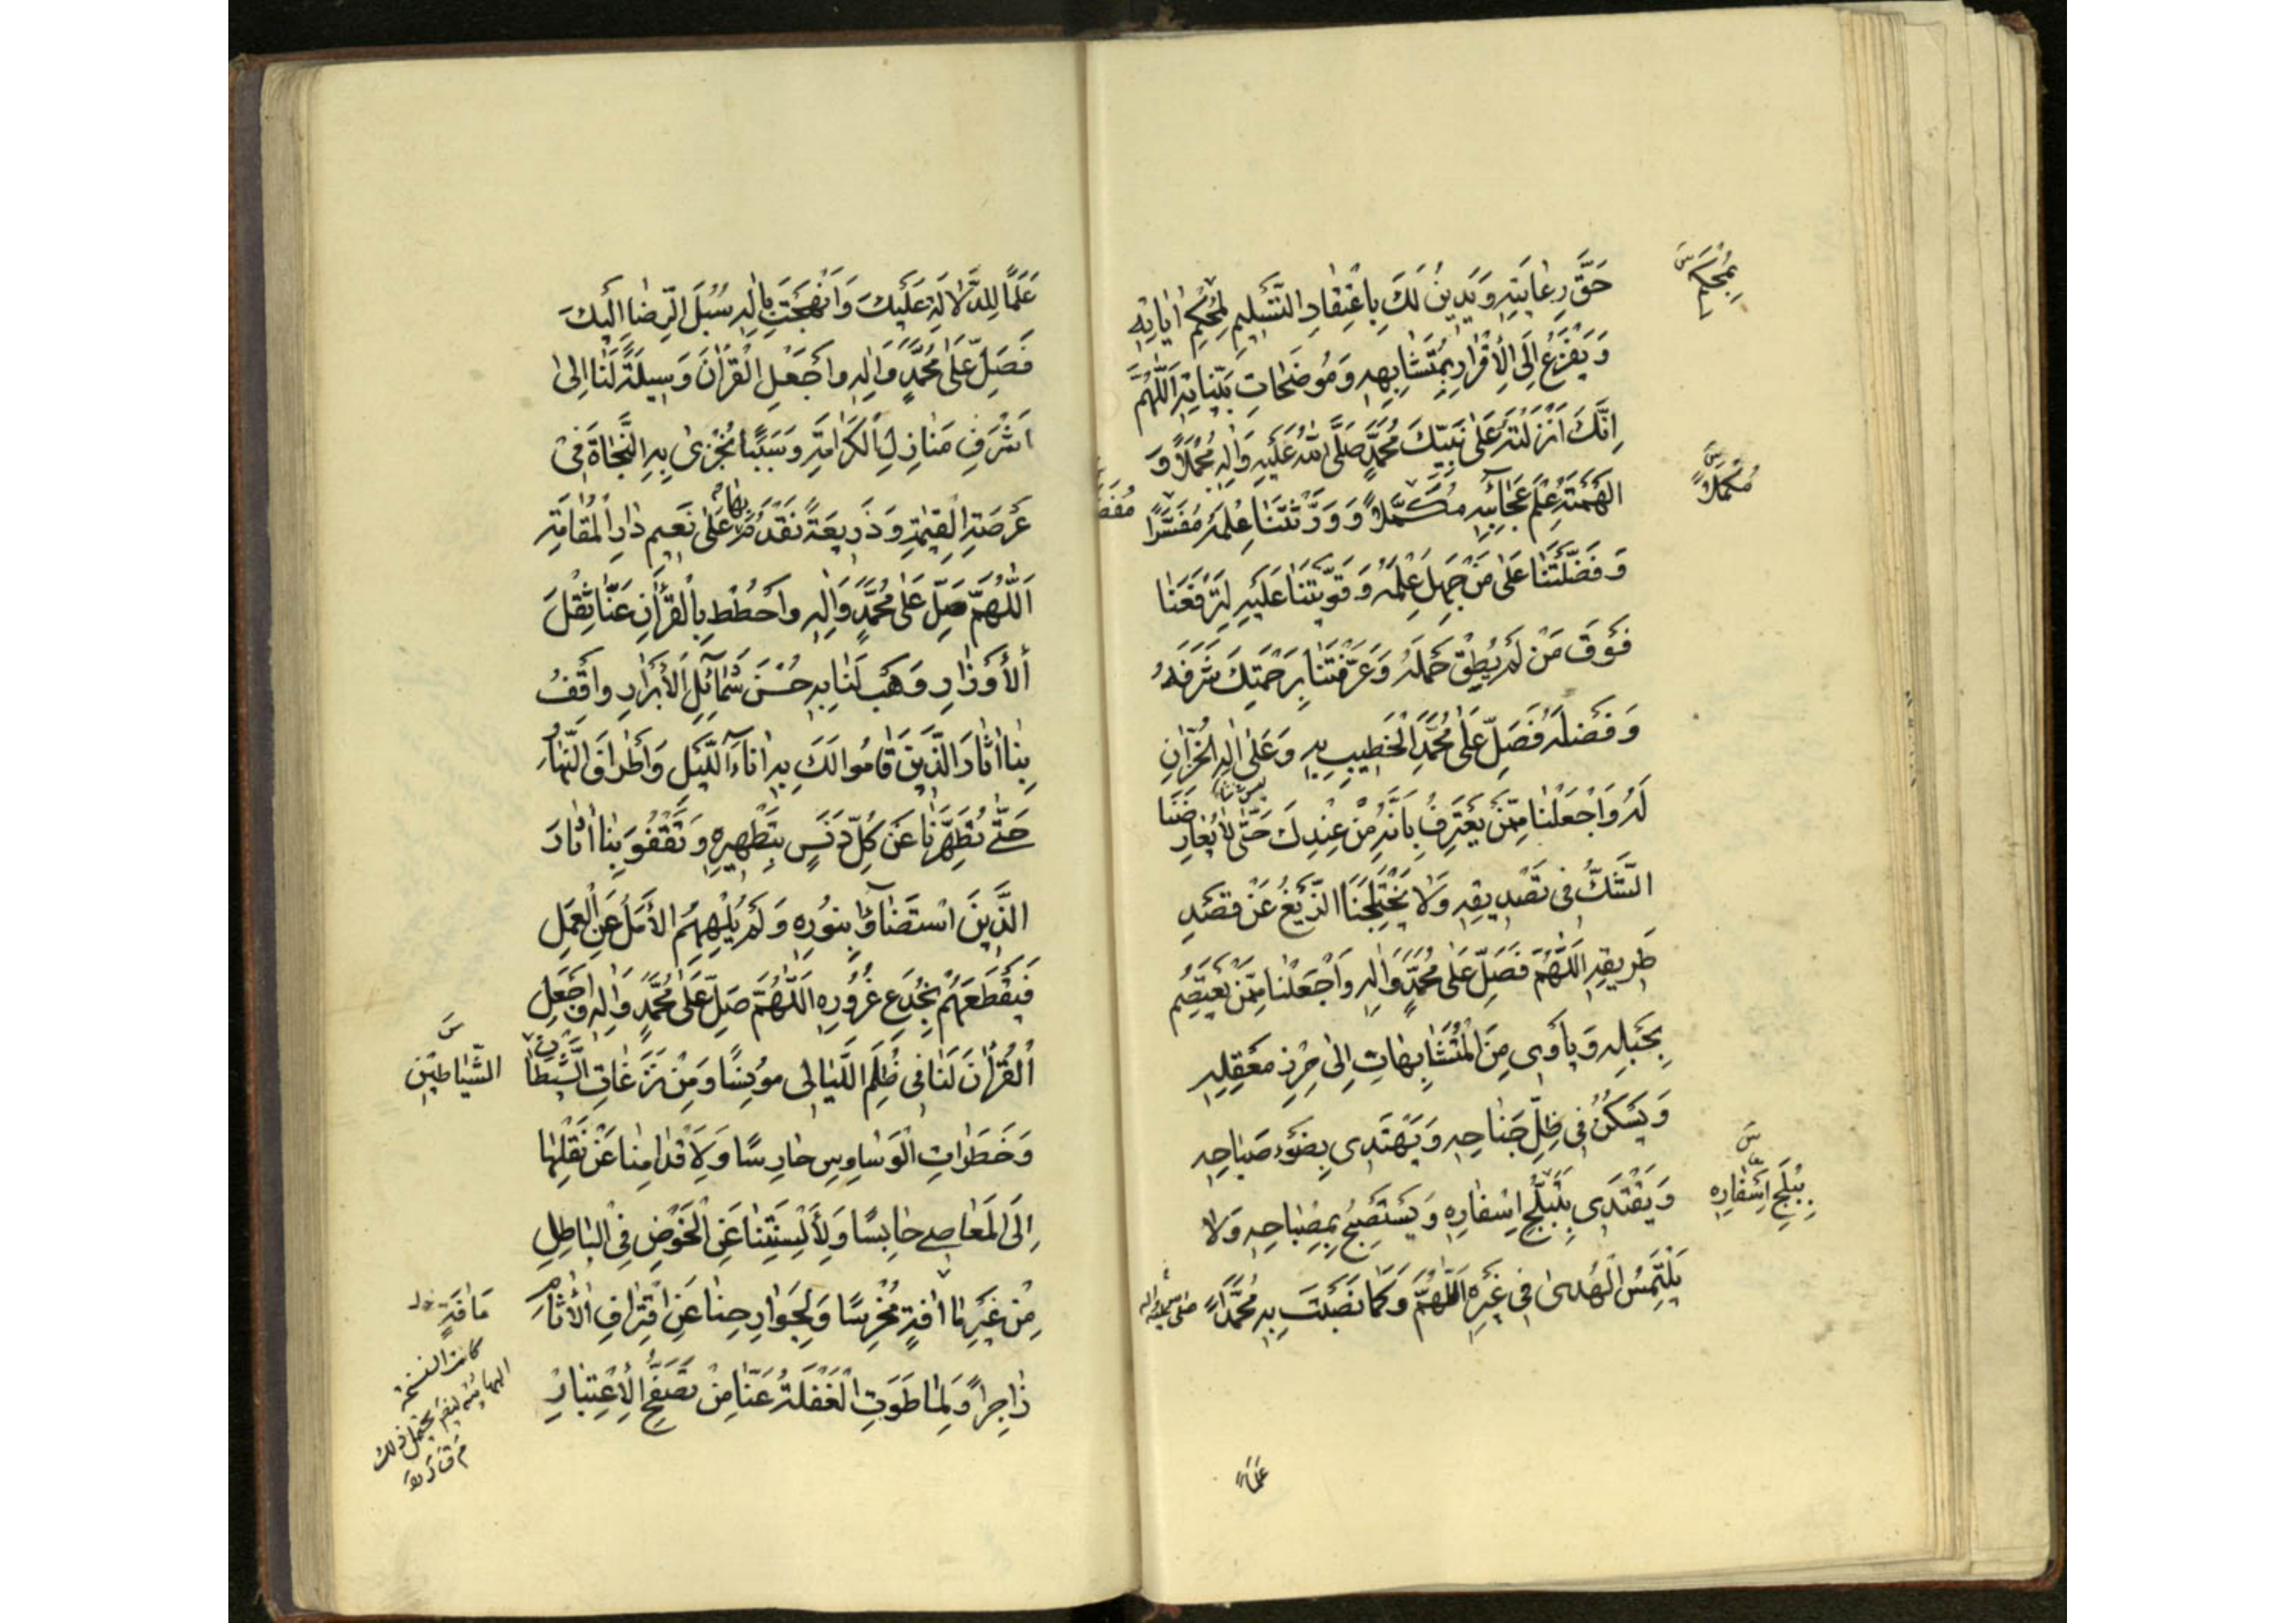 حَقَّ رِعَايَتِهِ وَيَدِينُ لَكَ بِاعْتِقَادِ التَّسْلِيمِ لِمُحْكَمِ اٰيَاتِهِ
بِمُحْكَمِ س
وَيَفْزَعُ اِلَى الْاِقْرَارِ بِمُتَشَابِهِهِ وَمُوضَحَاتِ بَيِّنَاتِهِ اَللّٰهُمَّ
اِنَّكَ اَنْزَلْتَهُ عَلٰى نَبِيِّكَ مُحَمَّدٍ صَلَّى اللّٰهُ عَلَيْهِ وَاٰلِهِ مُجْمَلًا وَ
اَلْهَمْتَهُ عِلْمَ عَجَآئِبِهِ مُكَمَّلًا وَوَرَّثْتَنَا عِلْمَهُ مُفَسَّرًا
مُكْمَلًا س
وَفَضَّلْتَنَا عَلٰى مَنْ جَهِلَ عِلْمَهُ وَقَوَّيْتَنَا عَلَيْهِ لِتَرْفَعَنَا
فَوْقَ مَنْ لَمْ يُطِقْ حَمْلَهُ وَعَرَّفْتَنَا بِرَحْمَتِكَ شَرَفَهُ
وَفَضْلَهُ فَصَلِّ عَلٰى مُحَمَّدٍ الْخَطِيبِ بِهِ وَعَلٰى اٰلِهِ الْخُزَّانِ
لَهُ وَاجْعَلْنَا مِمَّنْ يَعْتَرِفُ بِاَنَّهُ مِنْ عِنْدِكَ حَتّٰى لَا يُعَارِضَنَا
الشَّكُّ فِى تَصْدِيقِهِ وَلَا يَخْتَلِجَنَا الزَّيْغُ عَنْ قَصْدِ
طَرِيقِهِ اَللّٰهُمَّ فَصَلِّ عَلٰى مُحَمَّدٍ وَاٰلِهِ وَاجْعَلْنَا مِمَّنْ يَعْتَصِمُ
بِحَبْلِهِ وَيَأْوِى مِنَ الْمُتَشَابِهَاتِ اِلٰى حِرْزِ مَعْقِلِهِ
وَيَسْكُنُ فِى ظِلِّ جَنَاحِهِ وَيَهْتَدِى بِضَوْءِ صَبَاحِهِ
وَيَقْتَدِى بِتَبَلُّجِ اِسْفَارِهِ وَيَسْتَصْبِحُ بِمِصْبَاحِهِ وَلَا
بِبَلَجِ اَسْفَارِهِ س
يَلْتَمِسُ الْهُدٰى فِى غَيْرِهِ اَللّٰهُمَّ وَكَمَا نَصَبْتَ بِهِ مُحَمَّدًا
عَلَمًا
عَلَمًا لِلدَّلَالَةِ عَلَيْكَ وَاَنْهَجْتَ بِاٰلِهِ سُبُلَ الرِّضَا اِلَيْكَ
فَصَلِّ عَلٰى مُحَمَّدٍ وَاٰلِهِ وَاجْعَلِ الْقُرْاٰنَ وَسِيلَةً لَنَا اِلٰى
اَشْرَفِ مَنَازِلِ الْكَرَامَةِ وَسَبَبًا نُجْزٰى بِهِ النَّجَاةَ فِى
عَرْصَةِ الْقِيٰمَةِ وَذَرِيعَةً نَقْدَمُ بِهَا عَلٰى نَعِيمِ دَارِ الْمُقَامَةِ
اَللّٰهُمَّ صَلِّ عَلٰى مُحَمَّدٍ وَاٰلِهِ وَاحْطُطْ بِالْقُرْاٰنِ عَنَّا ثِقْلَ
الْاَوْزَارِ وَهَبْ لَنَا بِهِ حُسْنَ شَمَآئِلِ الْاَبْرَارِ وَاقْفُ
بِنَا اٰثَارَ الَّذِينَ قَامُوا لَكَ بِهِ اٰنَاءَ اللَّيْلِ وَاَطْرَافَ النَّهَارِ
حَتّٰى تُطَهِّرَنَا عَنْ كُلِّ دَنَسٍ بِتَطْهِيرِهِ وَتَقْفُوَ بِنَا اٰثَارَ
الَّذِينَ اسْتَضَآؤُا بِنُورِهِ وَلَمْ يُلْهِهِمُ الْاَمَلُ عَنِ الْعَمَلِ
فَيَقْطَعَهُمْ بِخُدَعِ غُرُورِهِ اَللّٰهُمَّ صَلِّ عَلٰى مُحَمَّدٍ وَاٰلِهِ وَاجْعَلِ
الْقُرْاٰنَ لَنَا فِى ظُلَمِ اللَّيَالِى مُونِسًا وَمِنْ نَزَغَاتِ الشَّيْطَانِ
الشَّيَاطِينِ س
وَخَطَرَاتِ الْوَسَاوِسِ حَارِسًا وَلِاَقْدَامِنَا عَنْ نَقْلِهَا
اِلَى الْمَعَاصِى حَابِسًا وَلِاَلْسِنَتِنَا عَنِ الْخَوْضِ فِى الْبَاطِلِ
مِنْ غَيْرِ مَا اٰفَةٍ مُخْرِسًا وَلِجَوَارِحِنَا عَنِ اقْتِرَافِ الْاٰثَامِ
زَاجِرًا وَلِمَا طَوَتِ الْغَفْلَةُ عَنَّا مِنْ تَصَفُّحِ الْاِعْتِبَارِ